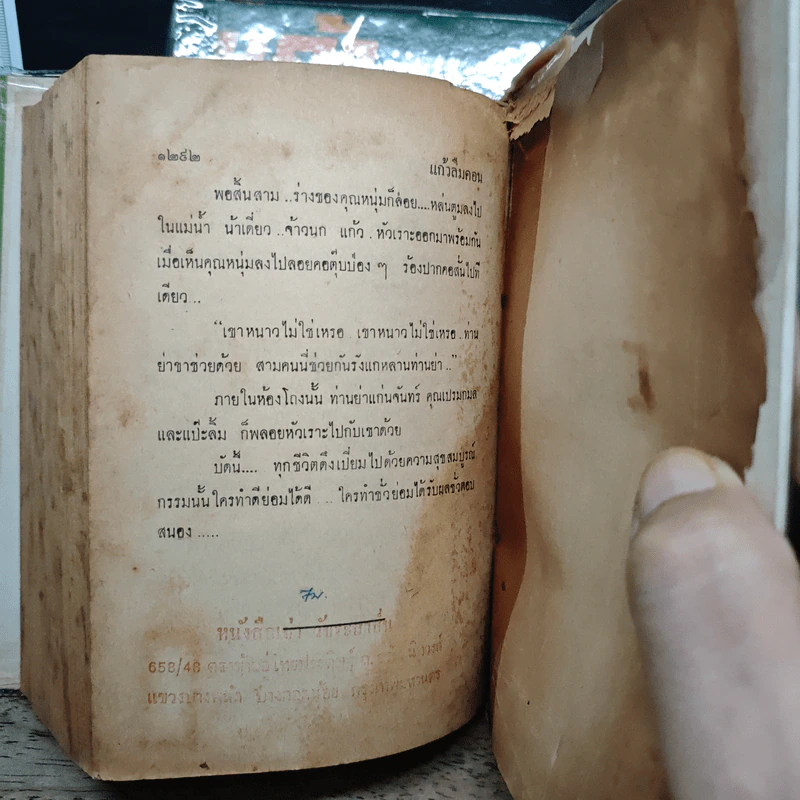 ๑๒๙๒
แก้วลืมคอน
พอสิ้นสาม ..ร่างของคุณหนุ่มก็ลอย....หล่นตูมลงไป
ในแม่น้ำ น้าเดี่ยว ..จ้าวนก แก้ว . หัวเราะออกมาพร้อมกัน
เมื่อเห็นคุณหนุ่มลงไปลอยคอตุ๊บป่อง ๆ ร้องปากคอสั่นไปที
เดียว ..
“เขาหนาวไม่ใช่เหรอ . เขาหนาวไม่ใช่เหรอ . ท่าน
ย่าขาช่วยด้วย สามคนนี่ช่วยกันรังแกหลานท่านย่า ..”
ภายในห้องโถงนั้น ท่านย่าแก่นจันทร์ คุณเปรมกมล
และแป๊ะลิ้ม ก็พลอยหัวเราะไปกับเขาด้วย
บัดนี้.... ทุกชีวิตดึงเปี่ยมไปด้วยความสุขสมบูรณ์
กรรมนั้นใครทำดีย่อมได้ดี .... ใครทำชั่วย่อมได้รับผลชั่วตอบ
สนอง .....
หนังสือเช่า
658/48
แขวงบางหว้า กรุงเทพมหานคร